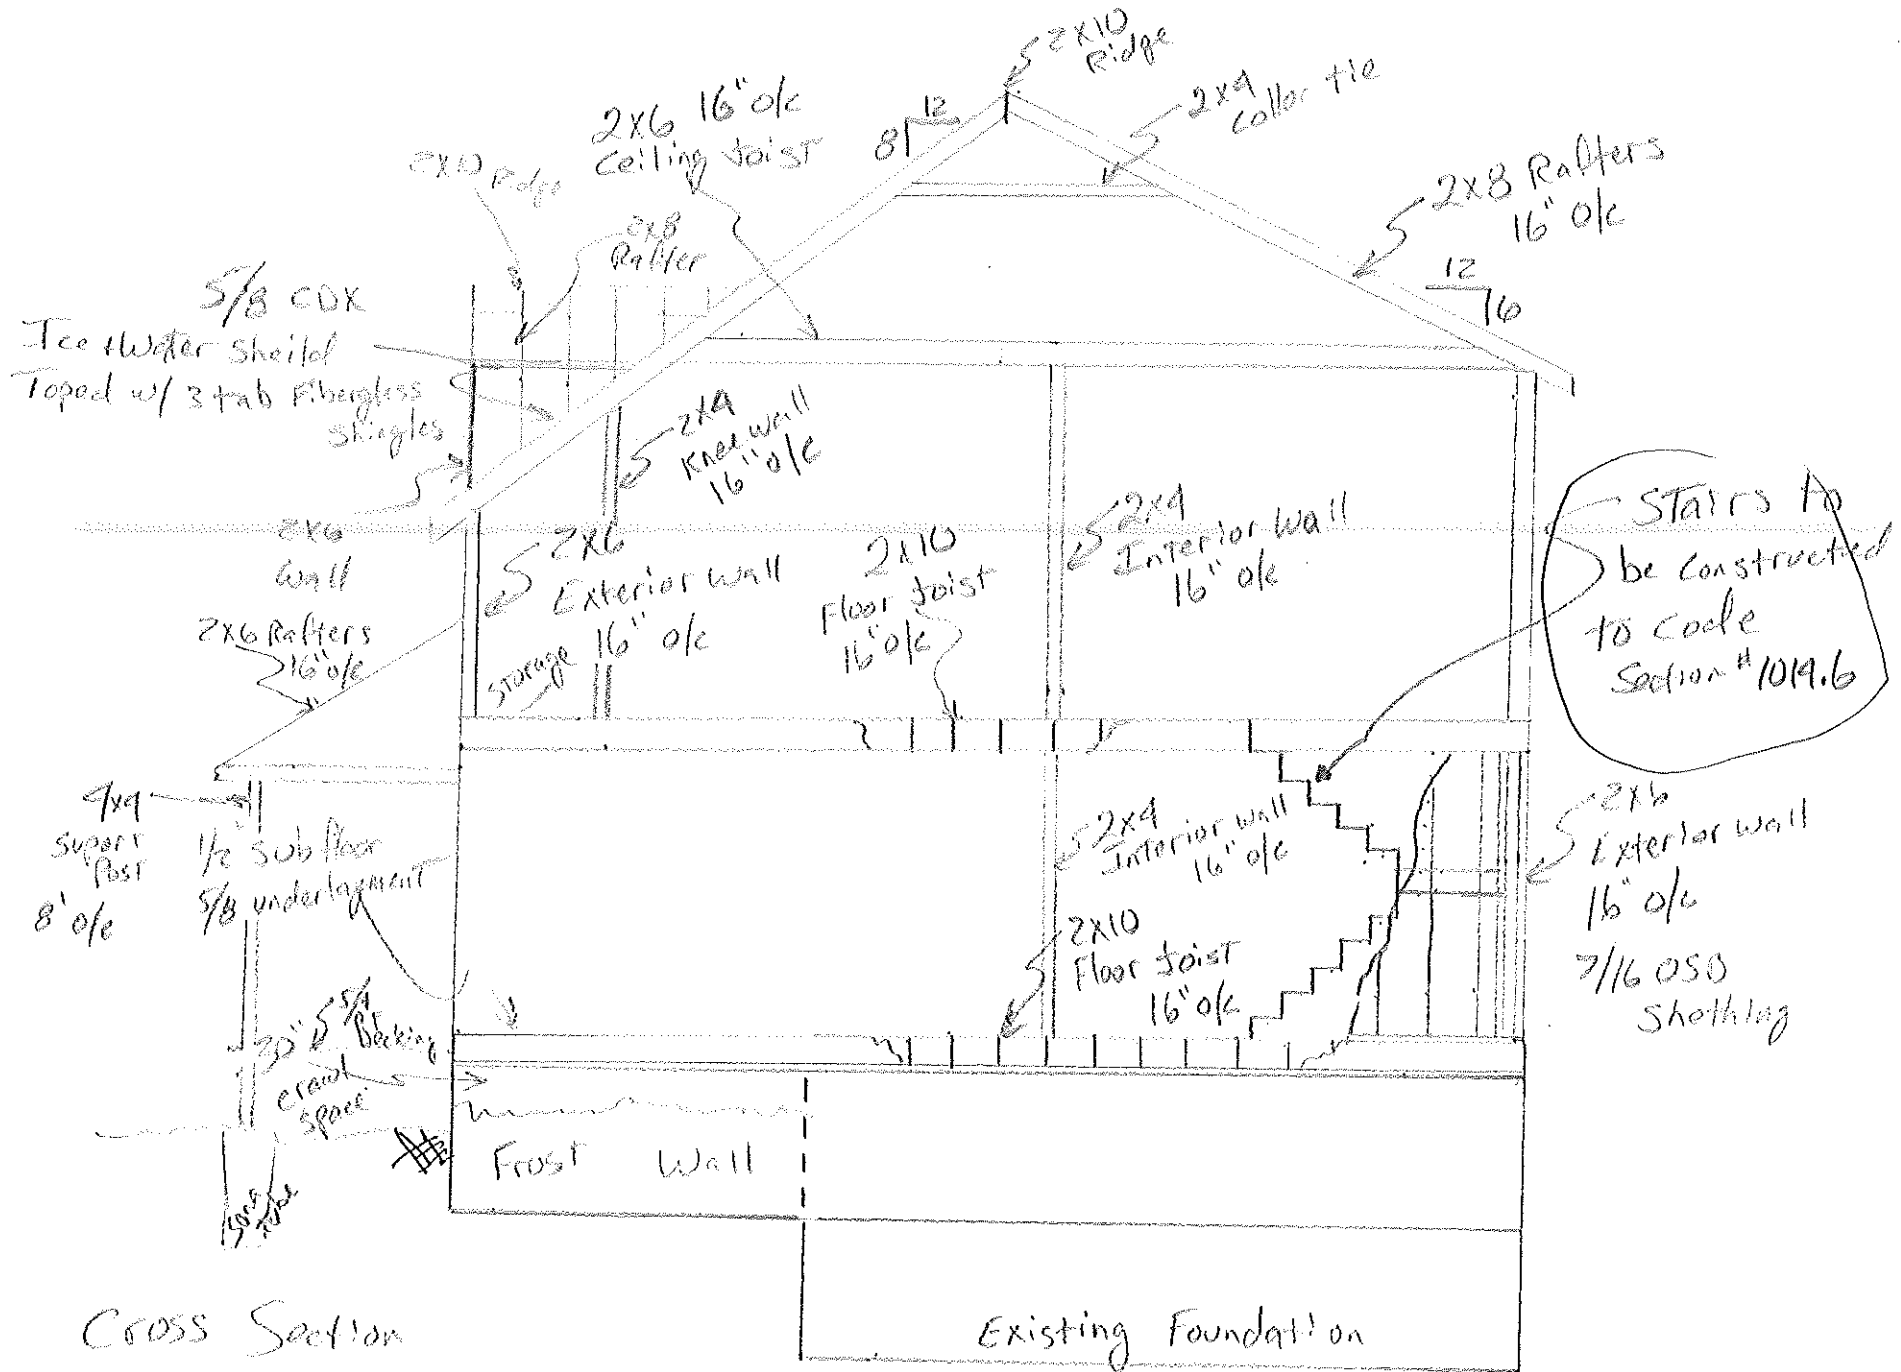 2x10
Ridge
2x4
Collor tie
12
8
2x6 16" o/c
Ceiling Joist
2x10 Ridge
2x8
Rafter
2x8 Rafters
16" o/c
12
6
5/8 CDX
Ice + Water Sheild
Toped w/ 3 tab Fibergless
Shingles
2x4
Knee wall
16" o/c
2x6
Wall
2x6
Exterior Wall
16" o/c
2x10
Floor Joist
16" o/c
2x4
Interior Wall
16" o/c
Stairs to
be Constructed
to Code
Section # 1014.6
2x6 Rafters
16" o/c
Storage
4x4
Suport
Post
8' o/c
1/2" Subfloor
5/8 underlayment
2x4
Interior Wall
16" o/c
2x6
Exterior Wall
16" o/c
7/16 OSB
Shething
2x10
Floor Joist
16" o/c
5/4
Decking
crawl
space
Frost Wall
Sona
Tube
Cross Section
Existing Foundation